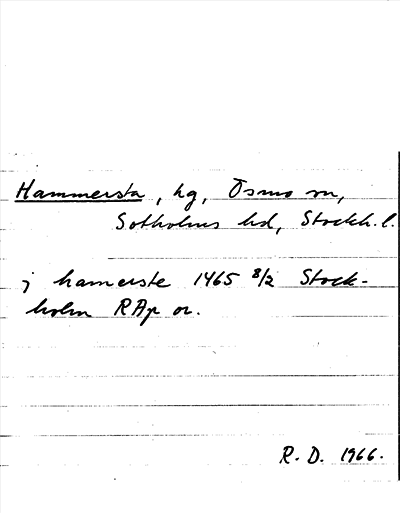 Hammersta, hg, Ösmo sn,
Sotholms hd, Stockh. l.
j hamerste 1465 8/2 Stock-
holm RAp or.
R. D. 1966.